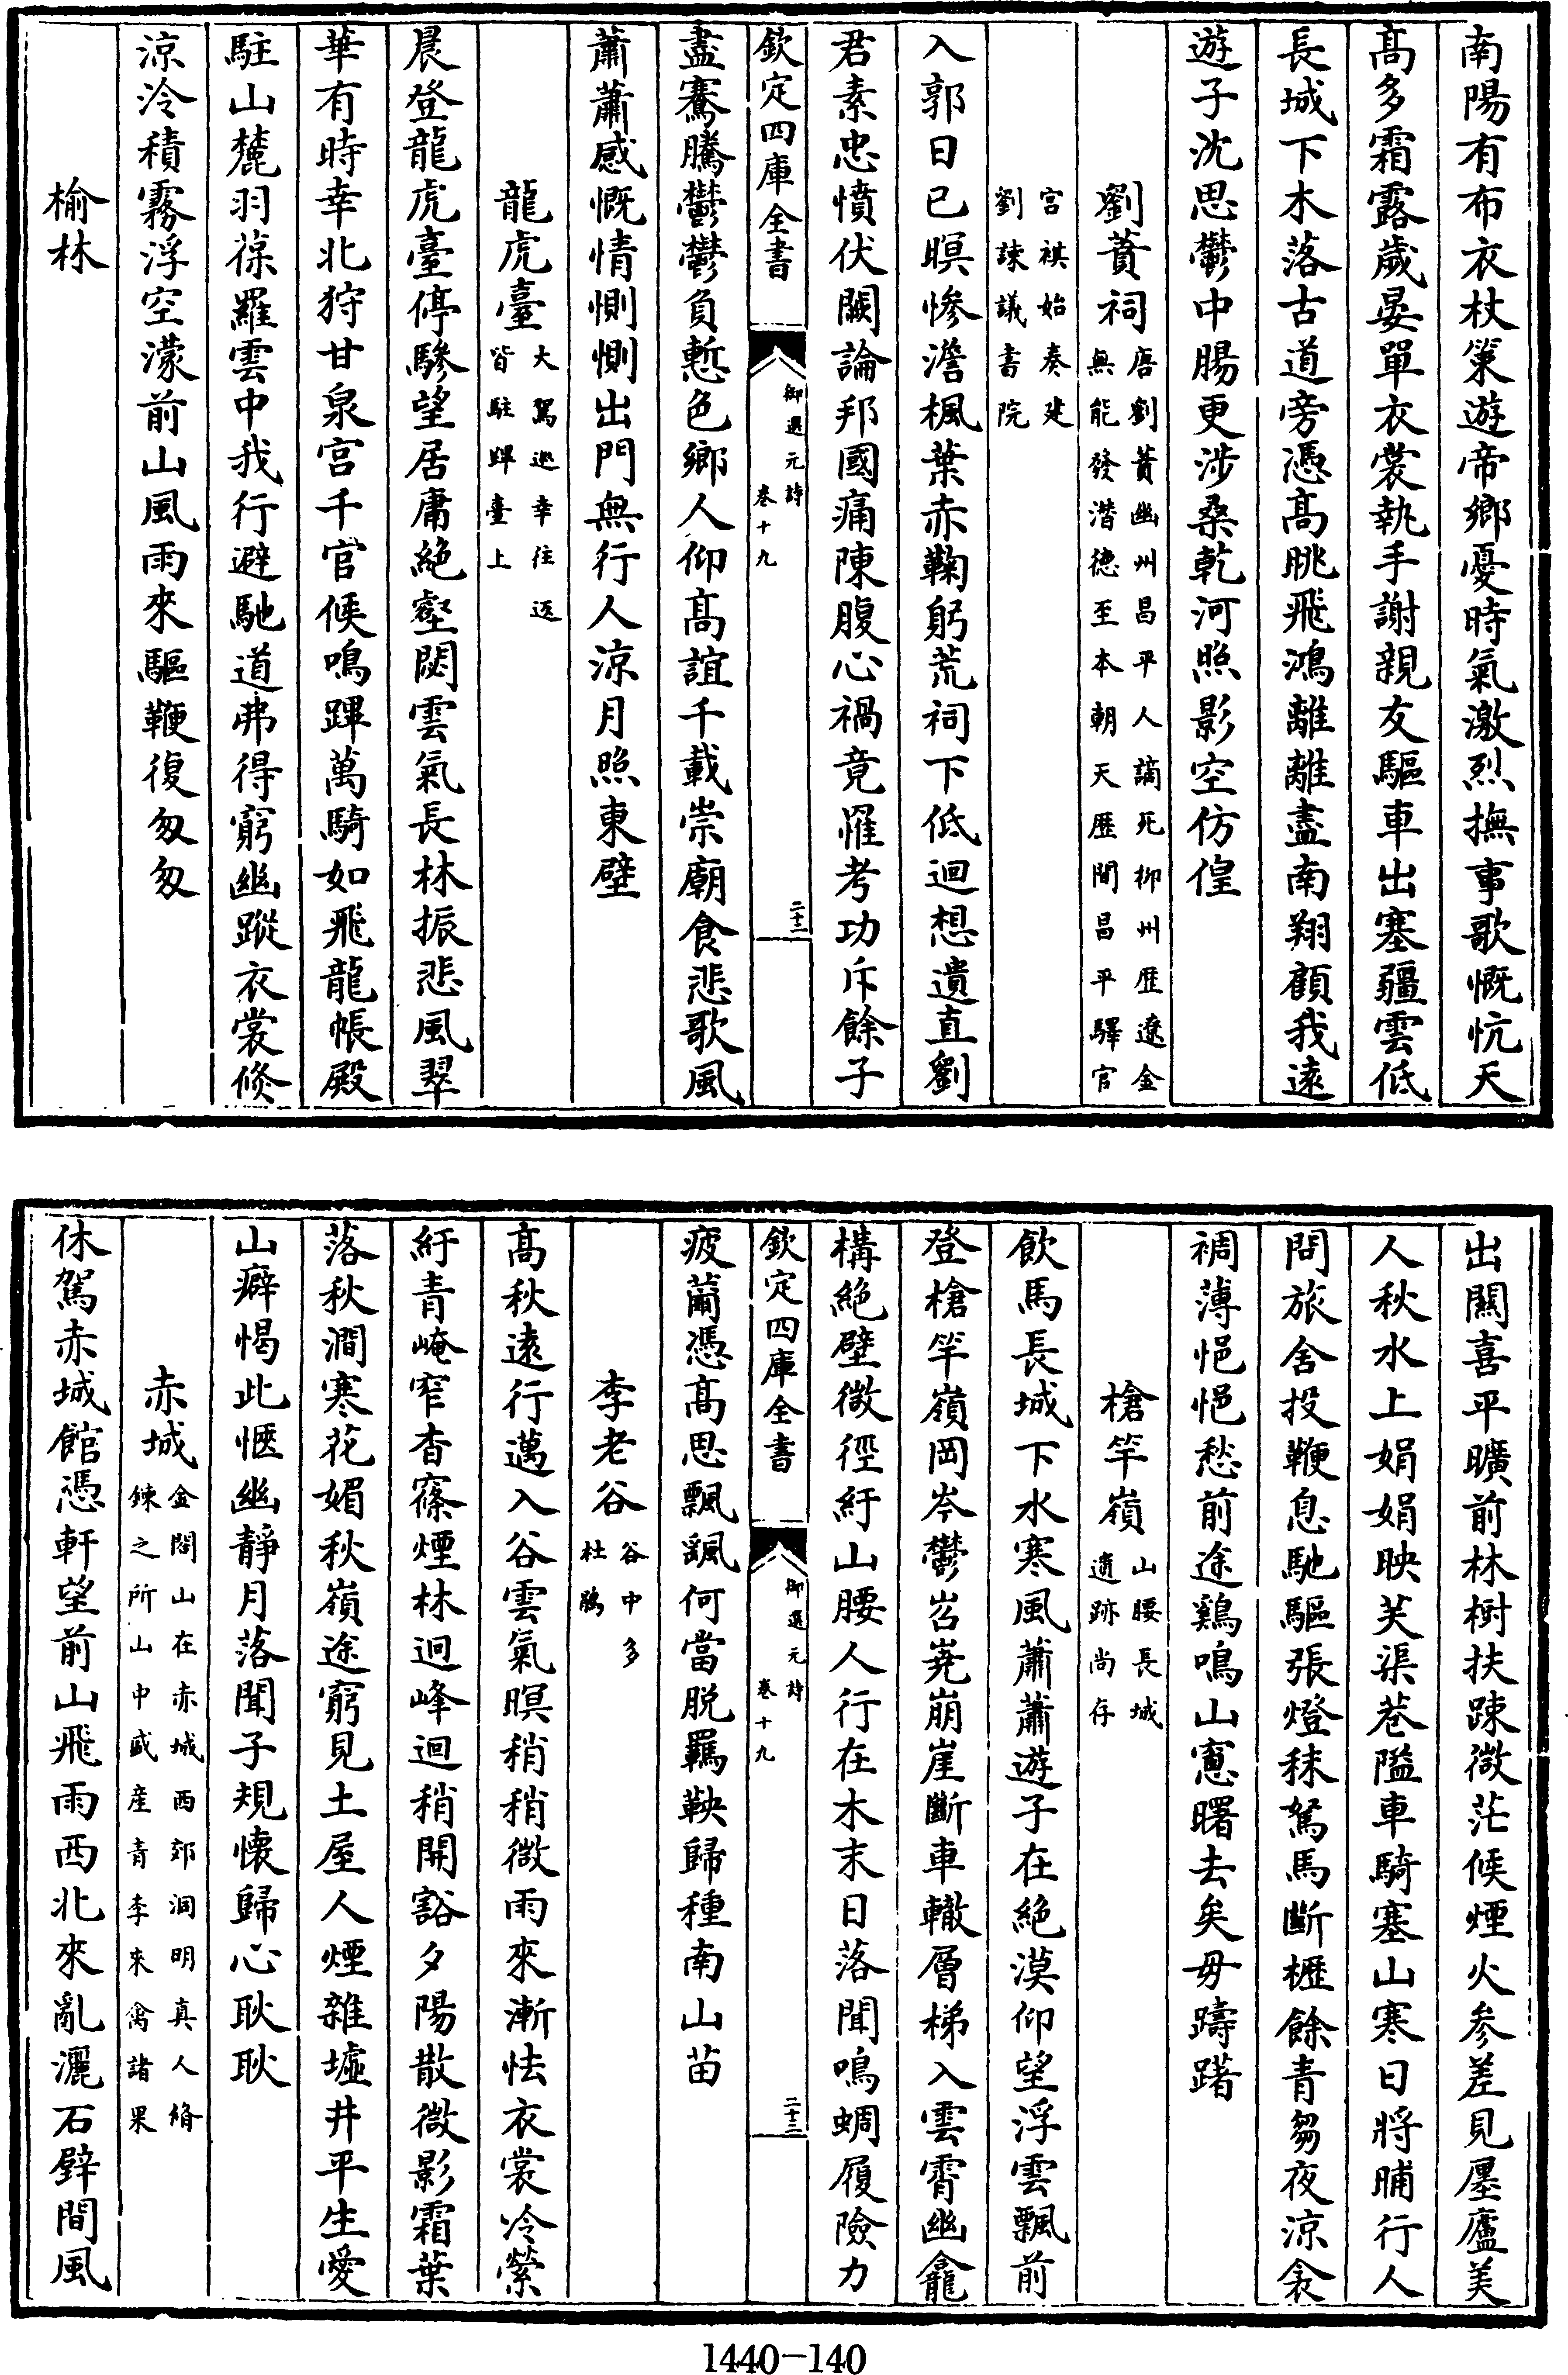 南陽有布衣杖策遊帝鄉憂時氣激烈撫事歌慨忼天
髙多霜露歲晏單衣裳執手謝親友驅車出塞疆雲低
長城下木落古道旁憑髙眺飛鴻離離盡南翔顧我逺
遊子沈思鬱中腸更渉桑乾河照影空仿偟
劉蕡祠唐劉蕡幽州昌平人謫死柳州歴遼金
無能發潛徳至本朝天歴間昌平驛官
宫祺始奏建
劉諫議書院
入郭日已暝惨澹楓葉赤鞠躬荒祠下低迴想遺直劉
君素忠憤伏闕論邦國痛陳腹心禍竟罹考功斥餘子
欽定四庫全書
御選元詩
卷十九
二十二
盡騫騰鬱鬱負慙色鄉人仰髙誼千載崇廟食悲歌風
蕭蕭感慨情惻惻出門無行人涼月照東壁
龍虎臺大駕巡幸往返
皆駐蹕臺上
晨登龍虎臺停驂望居庸絶壑閟雲氣長林振悲風翠
華有時幸北狩甘泉宫千官候鳴蹕萬騎如飛龍帳殿
駐山麓羽葆羅雲中我行避馳道弗得窮幽蹤衣裳倐
涼冷積霧浮空濛前山風雨來驅鞭復匆匆
榆林
出闗喜平曠前林樹扶踈微茫候煙火參差見㕓廬美
人秋水上娟娟映芙渠巷隘車騎塞山寒日將晡行人
問旅舍投鞭息馳驅張燈秣駑馬斷櫪餘青芻夜涼衾
裯薄悒悒愁前途鷄鳴山窻曙去矣毋躊躇
槍竿嶺山腰長城
遺跡尚存
飲馬長城下水寒風蕭蕭遊子在絶漠仰望浮雲飄前
登槍竿嶺岡岑鬱岧嶤崩崖斷車轍層梯入雲霄幽龕
構絶壁微徑紆山腰人行在木末日落聞鳴蜩履險力
欽定四庫全書
御選元詩
卷十九
二十三
疲薾憑髙思飄飖何當脱羈鞅歸種南山苗
李老谷谷中多
杜鵑
髙秋逺行邁入谷雲氣暝稍稍微雨來漸怯衣裳冷縈
紆青崦窄杳窱煙林迥峰迴稍開豁夕陽散微影霜葉
落秋澗寒花媚秋嶺途窮見土屋人煙雜墟井平生愛
山癖愒此愜幽靜月落聞子規懐歸心耿耿
赤城金閣山在赤城西郊洞明真人脩
錬之所山中盛産青李來禽諸果
休駕赤城館憑軒望前山飛雨西北來亂灑石壁間風
1440-140